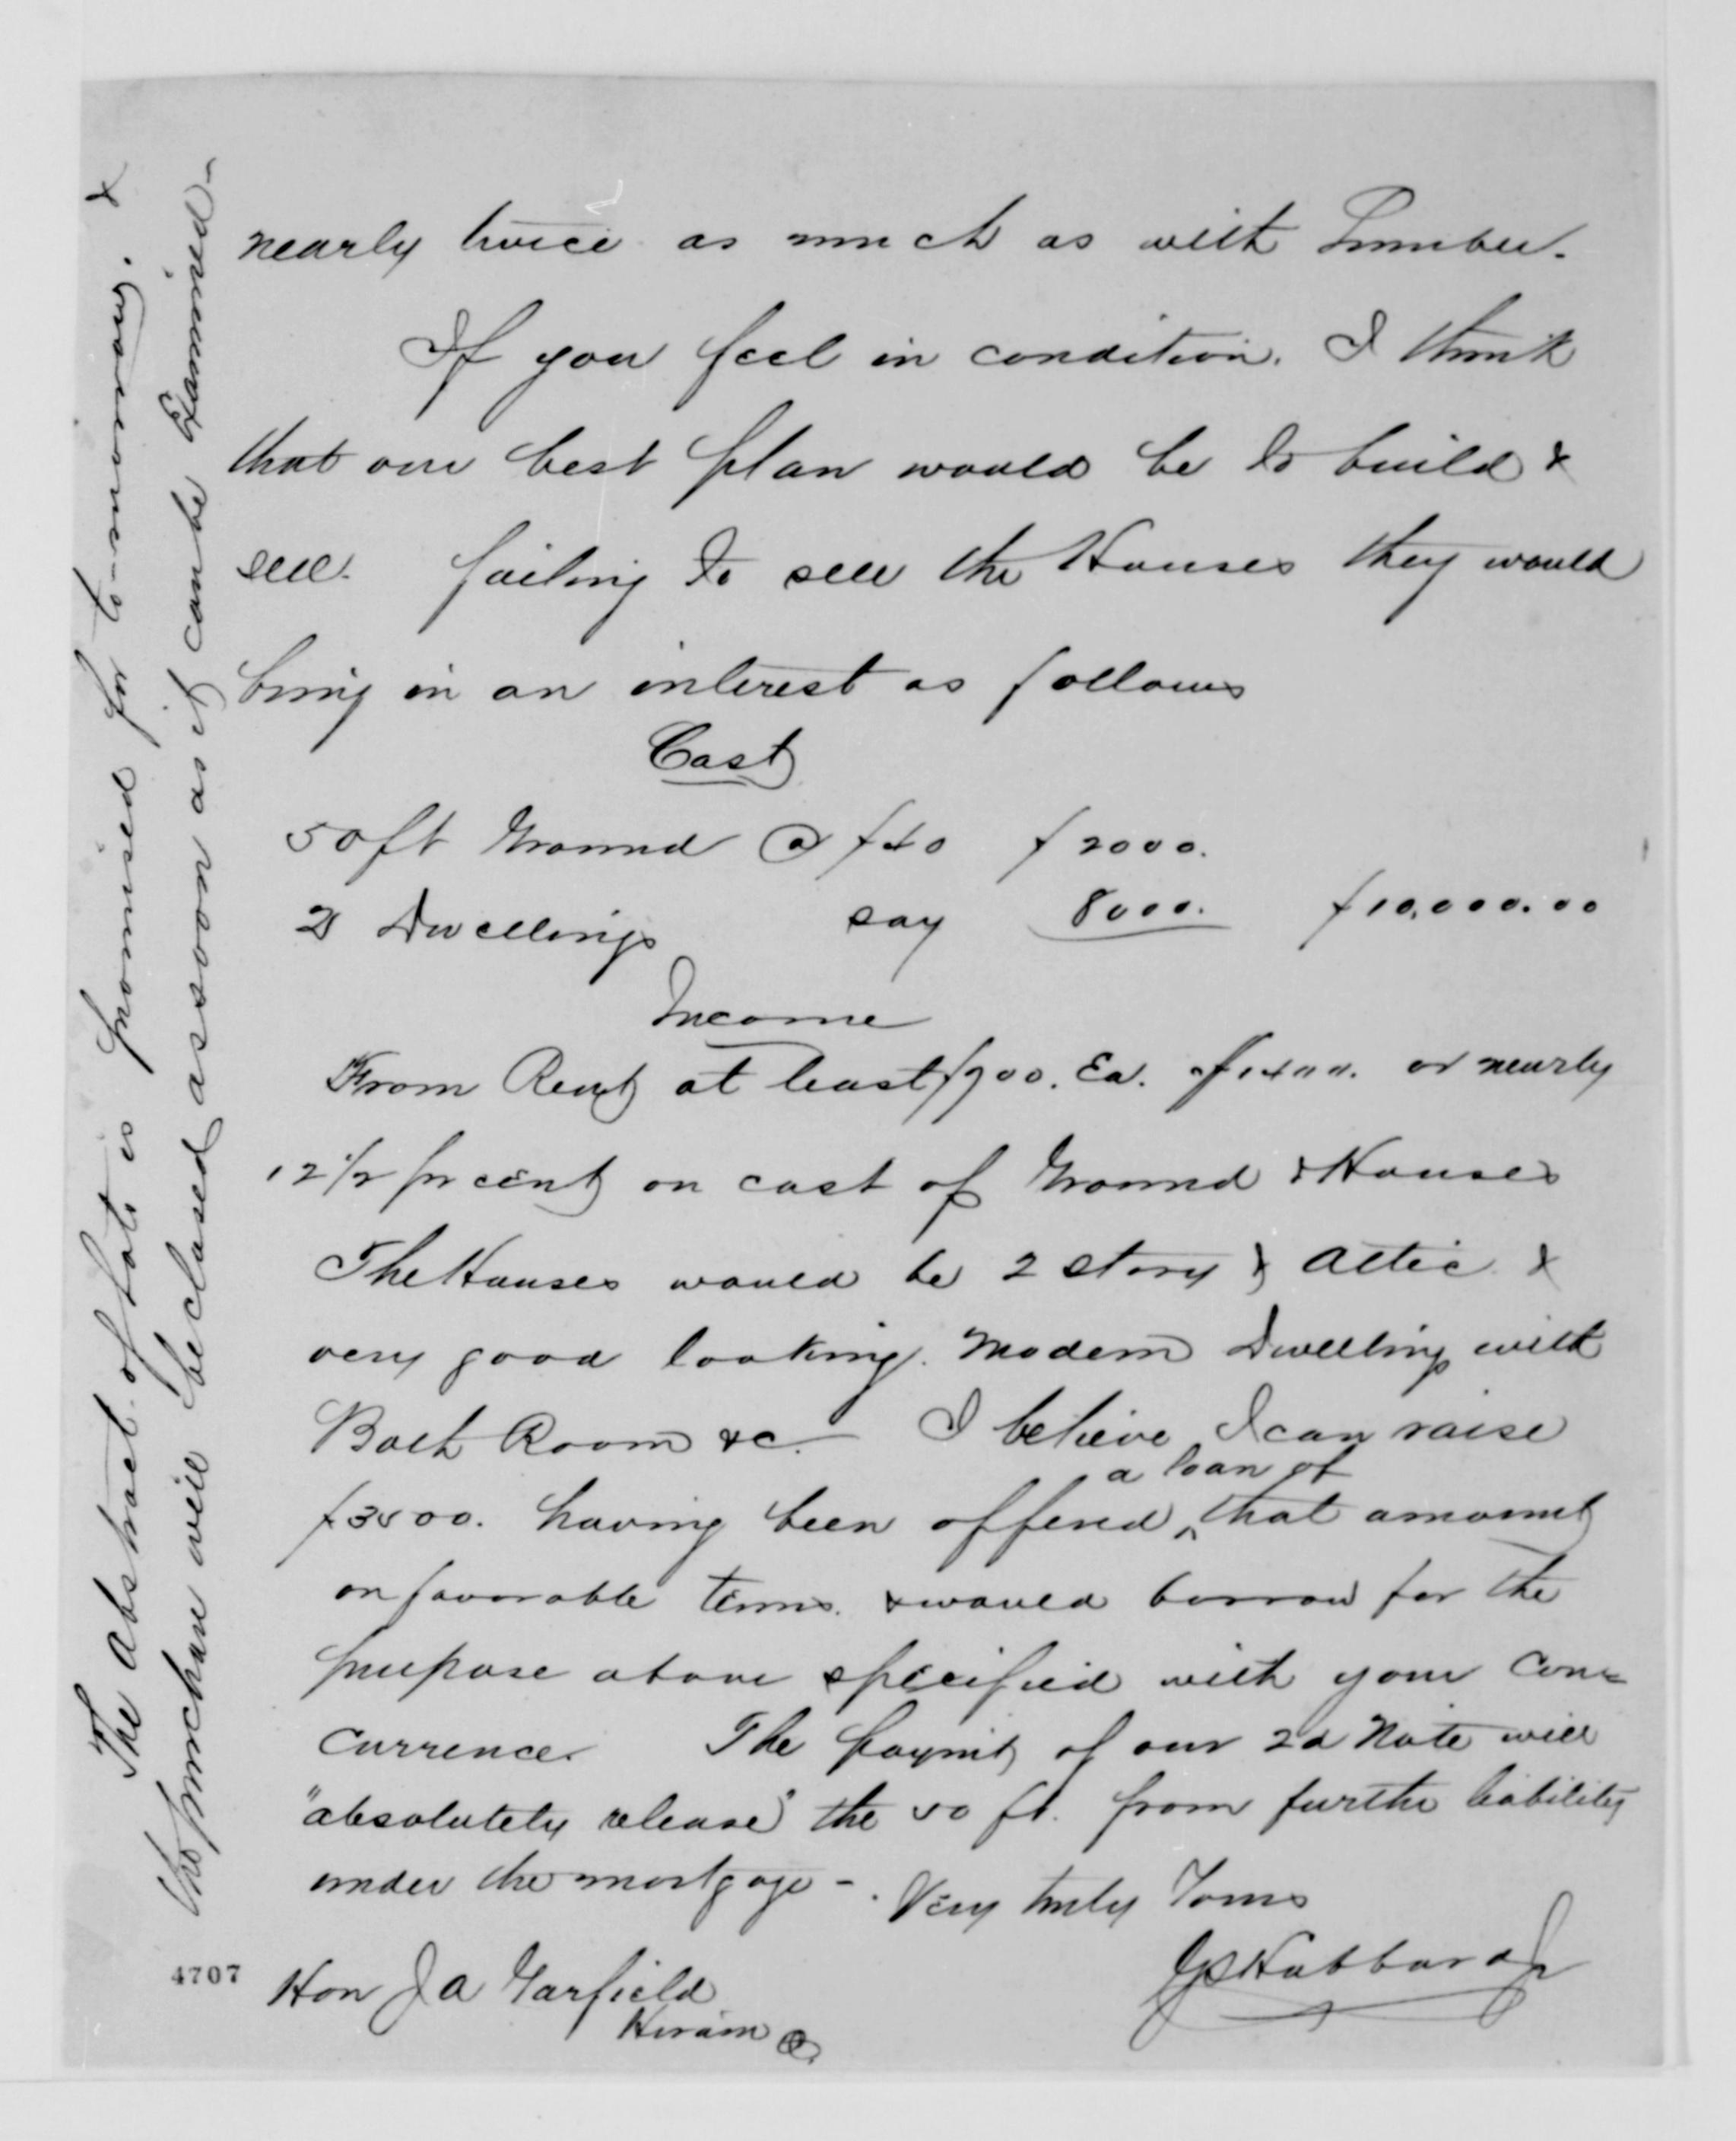 nearly twice as much as with Lumber.
If you feel in condition. I think
that our best plan would be to build &
sell. failing to sell the Houses they would
bring in an interest as follows
Cost
50 ft Ground @ $40 $2000.
2 Dwellings say 8000. $10,000.00
Income
From Rent at least $700. Ea. or nearly
12 1/2 pr cent on cost of Ground & Houses
The Houses would be 2 story & attic &
very good looking. Modern Dwelling with
Bath Room &c. I believe I can raise
a loan of
$3500. having been offered ^ that amount
on favorable terms. & would borrow for the
purpose above specified with your con=
currence. The paymt of our 2d Note will
"absolutely release" the 50 ft. from further liability
under the mortgage -. Very truly Yours
JS Hubbard Jr
Hon J A Garfield
Hiram O.
4707
The abstract of lots is promised for to-morrow. &
the purchase will be closed as soon as it can be Examined-